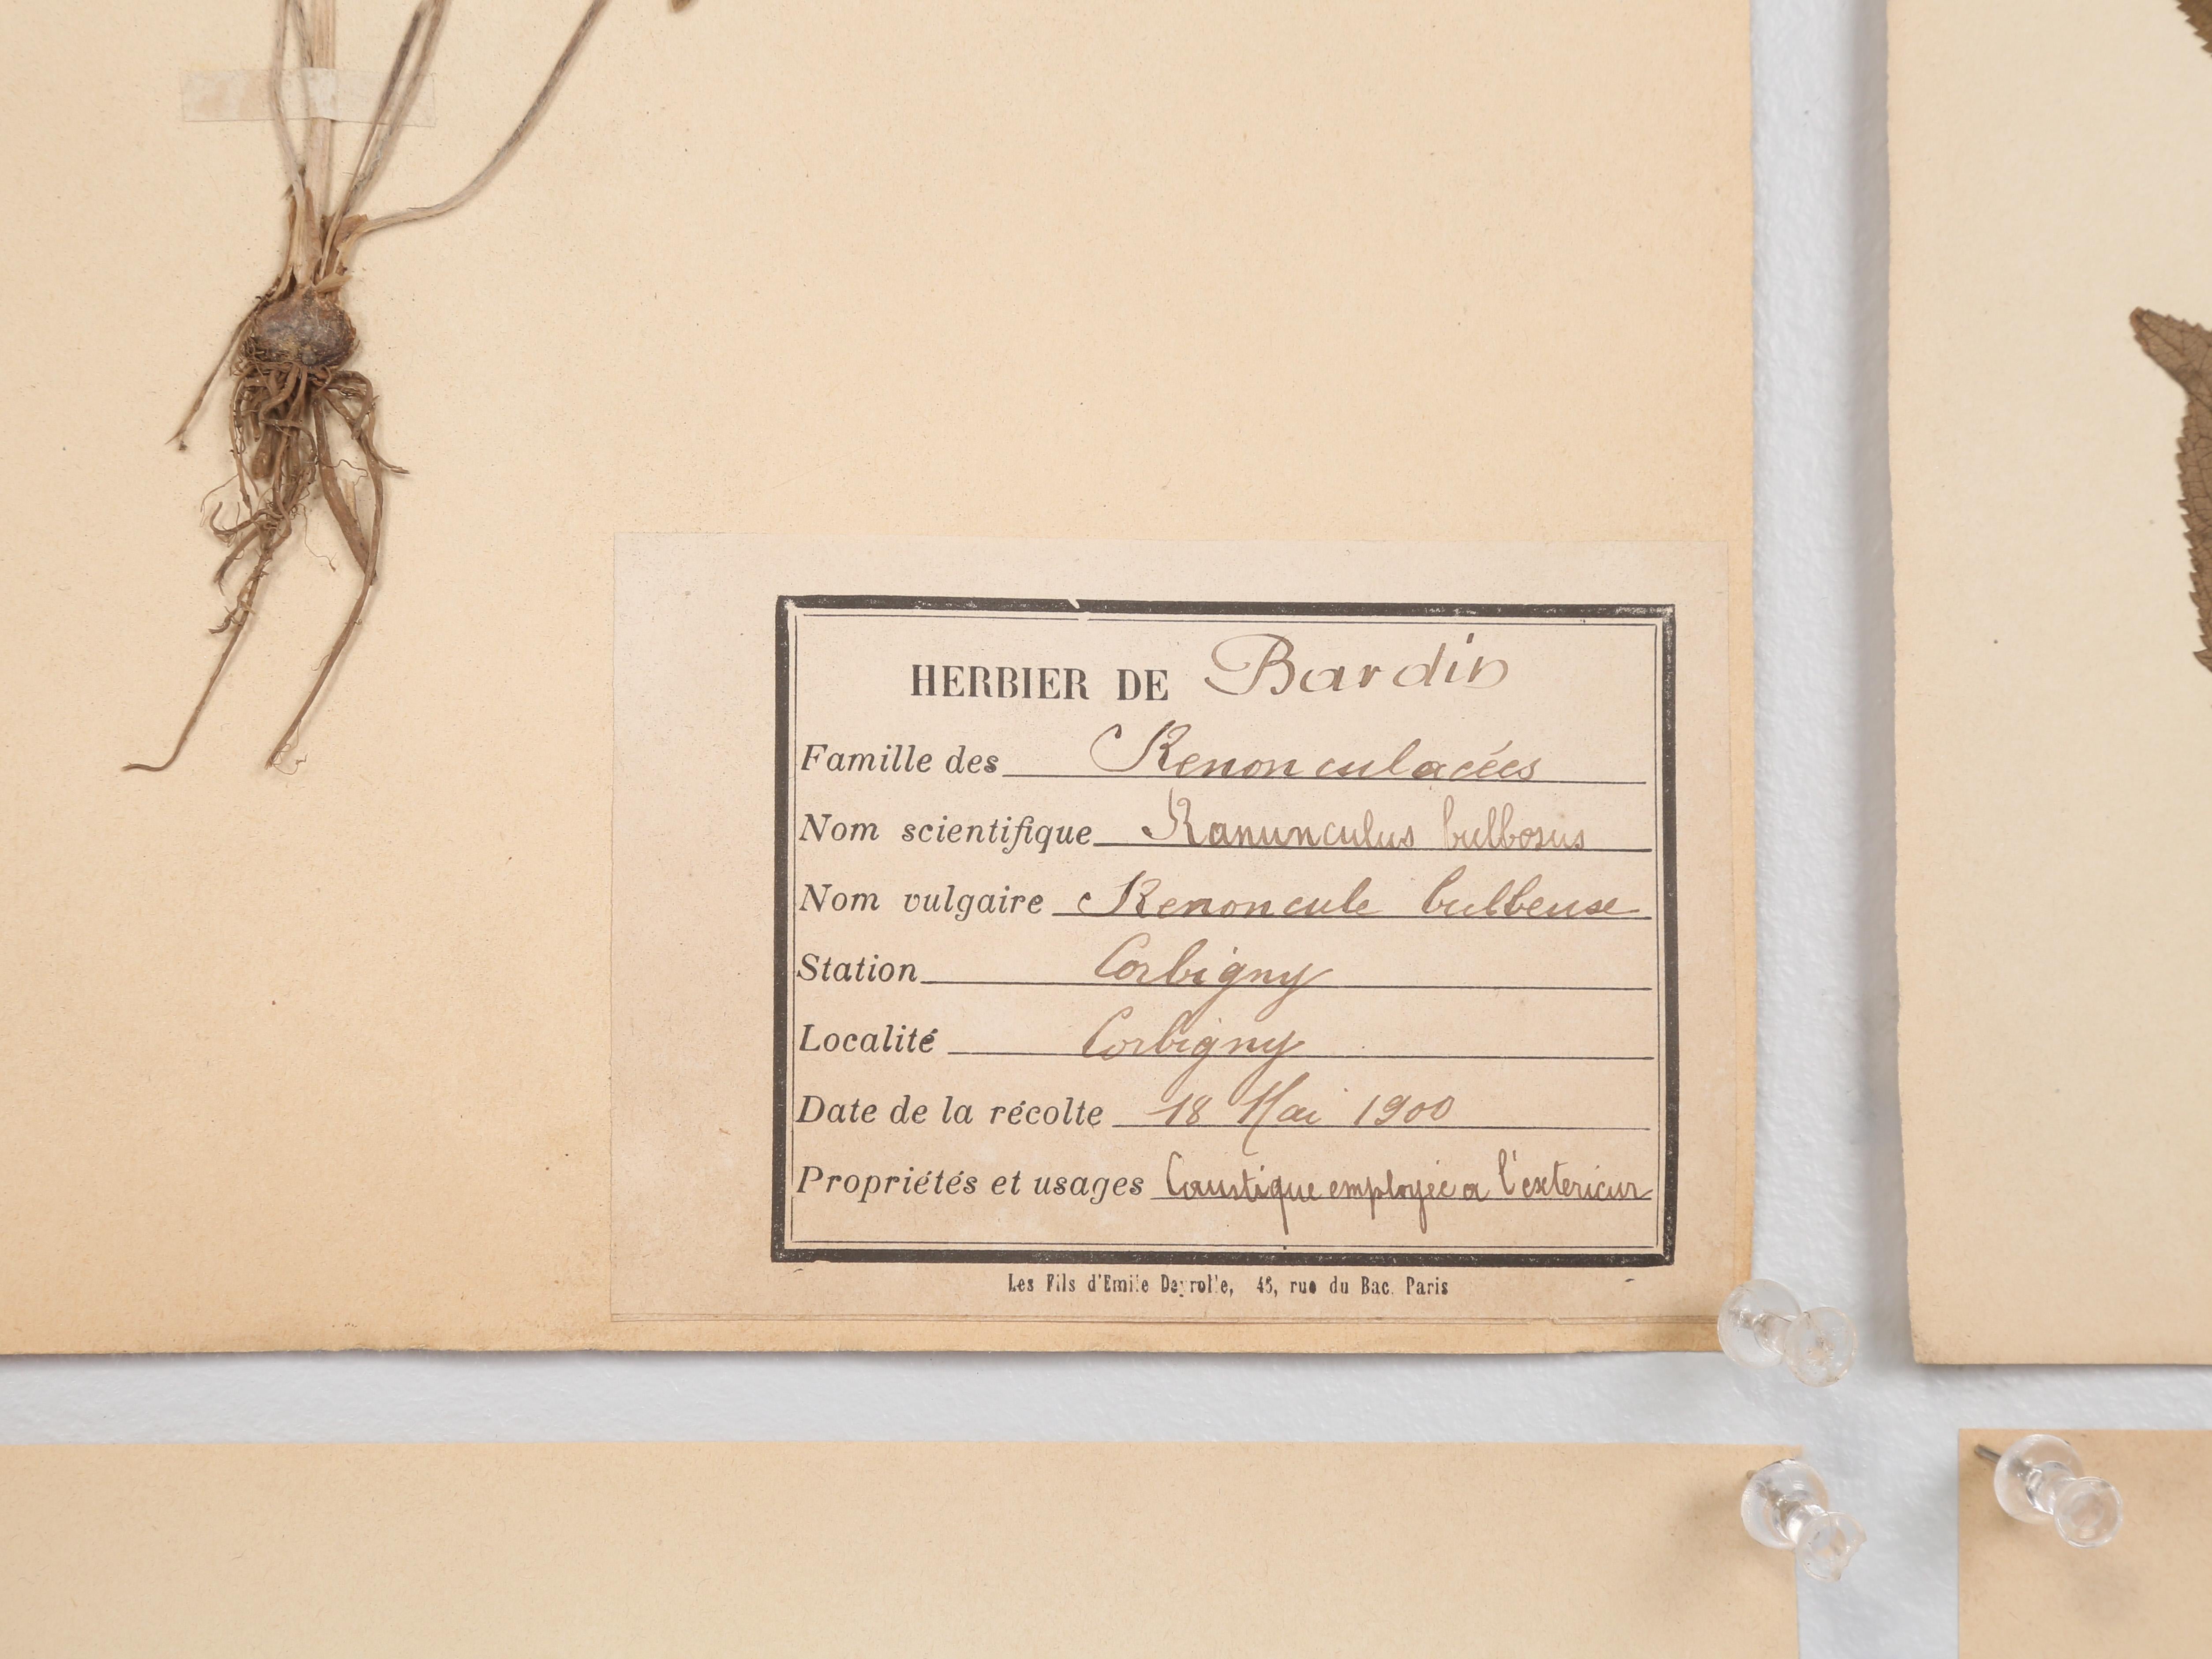 HERBIER DE Bardin
Famille des Renonculacées
Nom scientifique Ranunculus bulbosus
Nom vulgaire Renoncule bulbeuse
Station Corbigny
Localité Corbigny
Date de la récolte 18 Mai 1900
Propriétés et usages Caustique employée a l'exterieur
Les Fils d'Emile Deyrolle, 46, rue du Bac. Paris